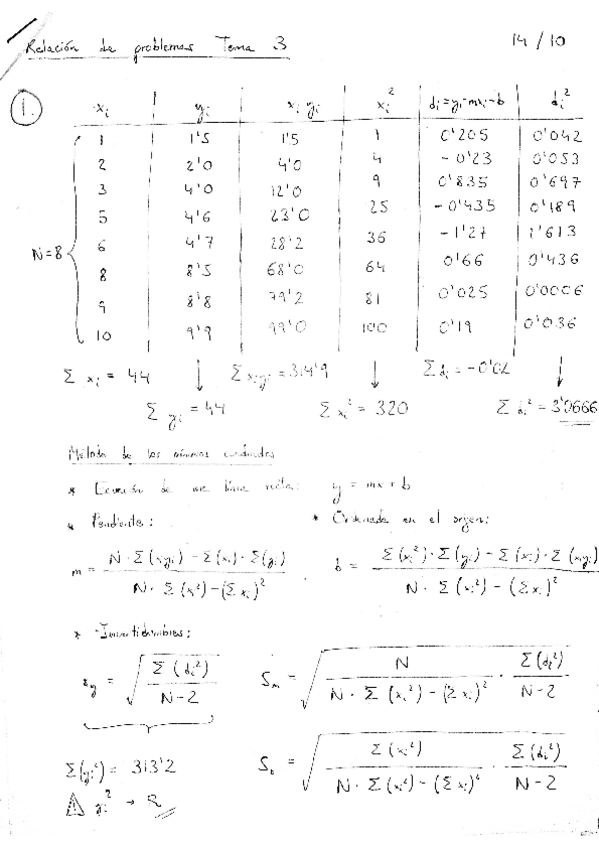 Relación de problemas Tema 3 14/10
1. xᵢ yᵢ xᵢ yᵢ xᵢ² dᵢ=yᵢ-mxᵢ-b dᵢ²
1 1'5 1'5 1 0'205 0'042
2 2'0 4'0 4 -0'23 0'053
3 4'0 12'0 9 0'835 0'697
5 4'6 23'0 25 -0'435 0'189
N=8 6 4'7 28'2 36 -1'27 1'613
8 8'5 68'0 64 0'66 0'436
9 8'8 79'2 81 0'025 0'0006
10 9'9 99'0 100 0'19 0'036
Σ xᵢ = 44 ↓ Σ xᵢyᵢ = 314'9 ↓ Σ dᵢ = -0'02 ↓
Σ yᵢ = 44 Σ xᵢ² = 320 Σ dᵢ² = 3'0666
Método de los mínimos cuadrados
* Ecuación de una línea recta: y = mx + b
* Pendiente: * Ordenada en el origen:
m = (N · Σ(xᵢyᵢ) - Σ(xᵢ) · Σ(yᵢ)) / (N · Σ(xᵢ²) - (Σxᵢ)²) b = (Σ(xᵢ²) · Σ(yᵢ) - Σ(xᵢ) · Σ(xᵢyᵢ)) / (N · Σ(xᵢ²) - (Σxᵢ)²)
* Incertidumbres:
= √(Σ(dᵢ²) / (N-2)) Sₘ = √(N / (N · Σ(xᵢ²) - (Σxᵢ)²) · Σ(dᵢ²) / (N-2))
Σ(yᵢ²) = 313'2 = √(Σ(xᵢ²) / (N · Σ(xᵢ²) - (Σxᵢ)²) · Σ(dᵢ²) / (N-2))
⚠ yᵢ² →